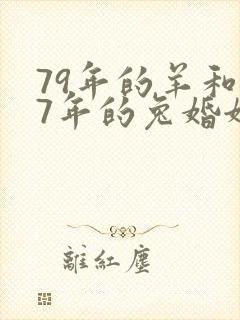 79年的羊和
7年的兔婚
離紅塵